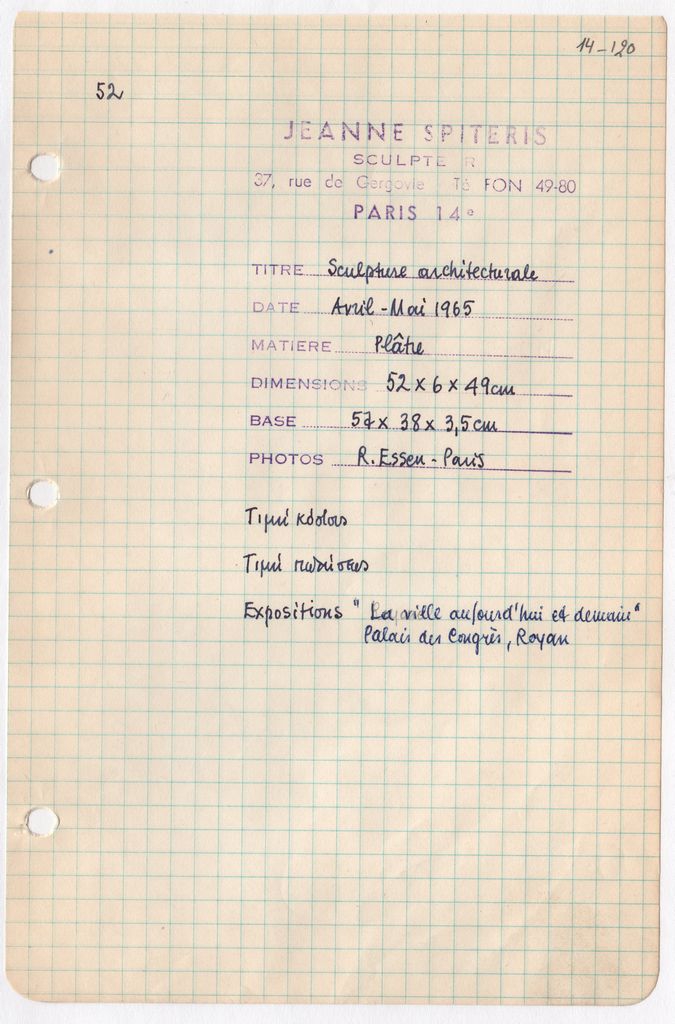 14-120
52
JEANNE SPITERIS
SCULPTE R
37, rue de Gergovie Té FON 49-80
PARIS 14e
TITRE Sculpture architecturale
DATE Avril - Mai 1965
MATIERE Plâtre
DIMENSIONS 52 x 6 x 49cm
BASE 57 x 38 x 3,5 cm
PHOTOS R. Essen - Paris
Τιμή κόστους
Τιμή πωλήσεως
Expositions " La ville aujourd'hui et demain"
Palais des Congrès, Royan